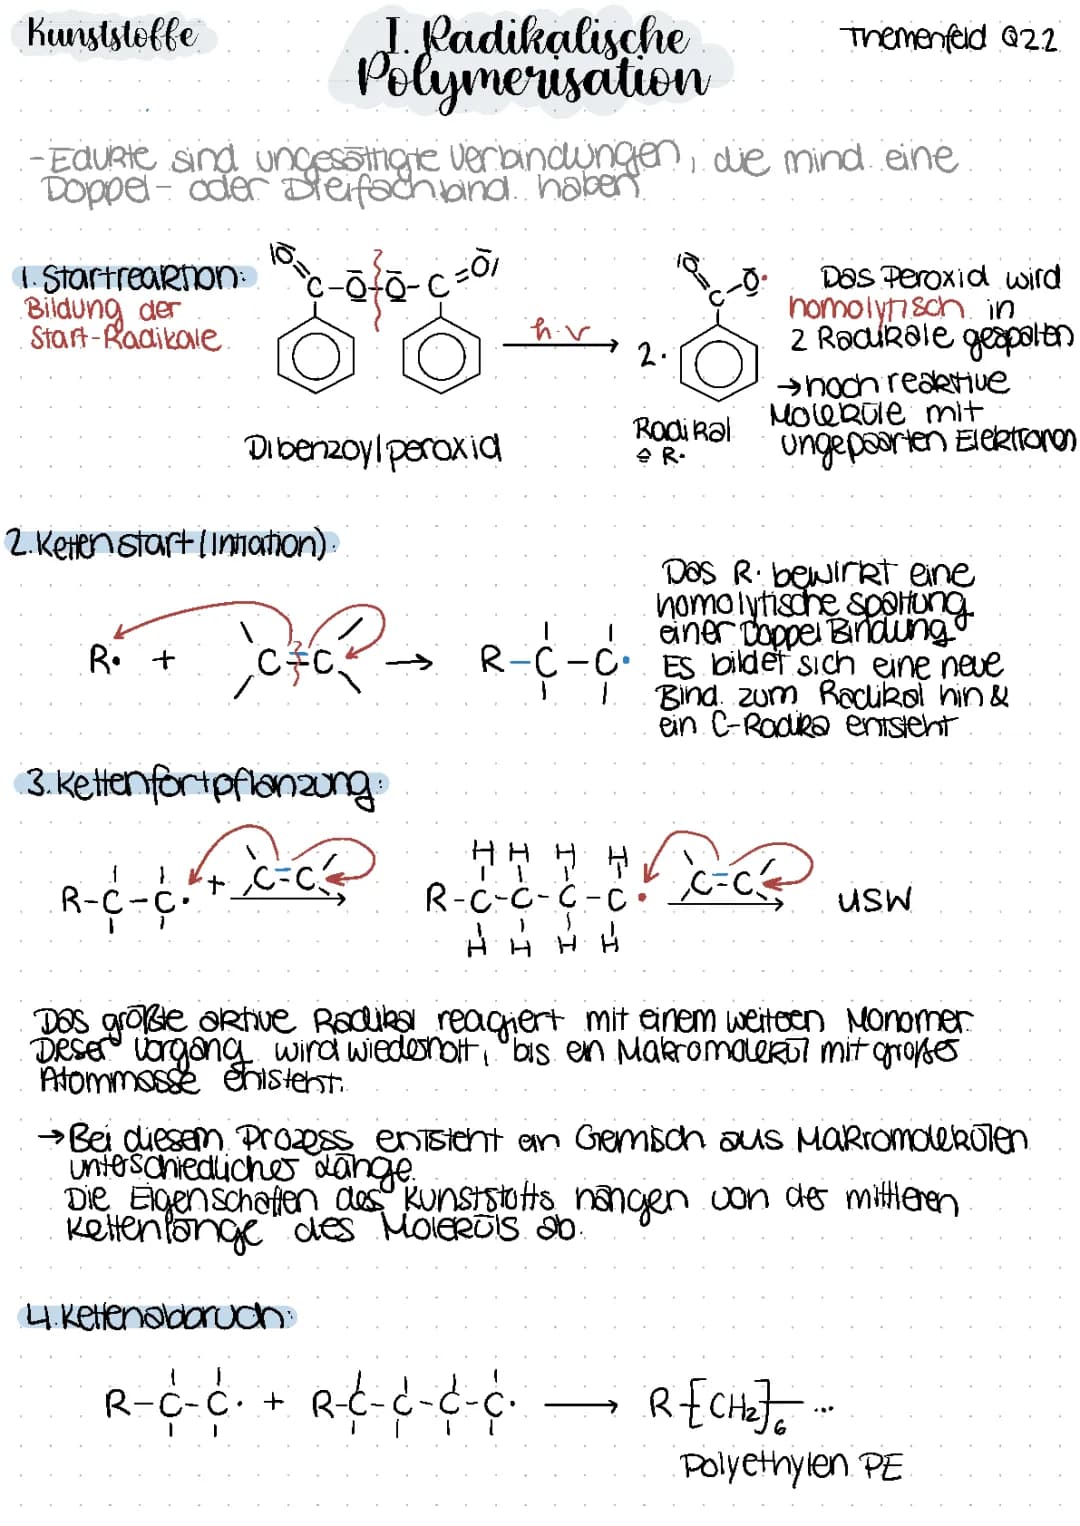 Kunststoffe
I. Radikalische
Polymerisation
Themenfeld Q22
- Edukte sind ungesättigte Verbindungen, die mind. eine
Doppel- oder Dreifachbind. haben
1. Startreaktion:
Bildung der
Start-Radikale
|O̅=C-O̅-O̅-C=O̅|
h·v
2·
|O̅=C-O̅·
Dibenzoylperoxid
Radikal
≙ R·
Das Peroxid wird
homolytisch in
2 Radikale gespalten
→ hoch reaktive
Moleküle mit
ungepaarten Elektronen
2. Kettenstart (Initiation):
R· + C=C → R-C-C·
Das R· bewirkt eine
homolytische Spaltung
einer Doppel Bindung
Es bildet sich eine neue
Bind. zum Radikal hin &
ein C-Radika entsteht
3. Kettenfortpflanzung:
H H H H
R-C-C· + C=C → R-C-C-C-C· C=C → usw
H H H H
Das größte aktive Radikal reagiert mit einem weiteen Monomer.
Deser Vorgang wird wiederholt, bis en Makromolekül mit großer
Atommasse entsteht.
→ Bei diesem Prozess entsteht ein Gemisch aus Makromolekülen
unterschiedlicher Länge.
Die Eigenschaften des Kunststoffs hängen von der mittleren
Kettenlänge des Moleküls ab.
4. Kettenabbruch:
R-C-C· + R-C-C-C-C· → R-[CH₂]₆- ...
Polyethylen PE